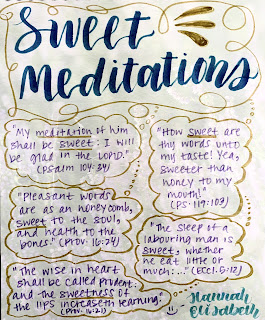 Sweet
Meditations
"My meditation of him
shall be sweet: I will
be glad in the LORD."
(Psalm 104:34)
"How sweet are
thy words unto
my taste! Yea,
sweeter than
honey to my
mouth!"
(PS. 119:103)
"Pleasant words
are as an honeycomb,
sweet to the soul,
and health to the
bones." (Prov. 16:24)
"The sleep of a
labouring man is
sweet, whether
he eat little or
much:..." (Eccl. 5:12)
"The wise in heart
shall be called prudent:
and the sweetness of
the lips increaseth learning."
(Prov. 16:21)
Hannah
Elisabeth